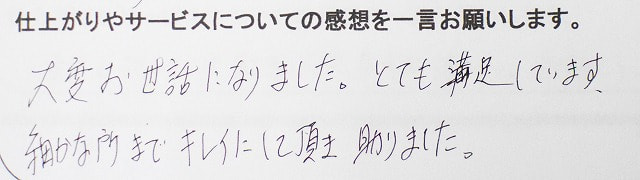 仕上がりやサービスについての感想を一言お願いします。
大変お世話になりました。とても満足しています、
細かな所までキレイにして頂き助かりました。